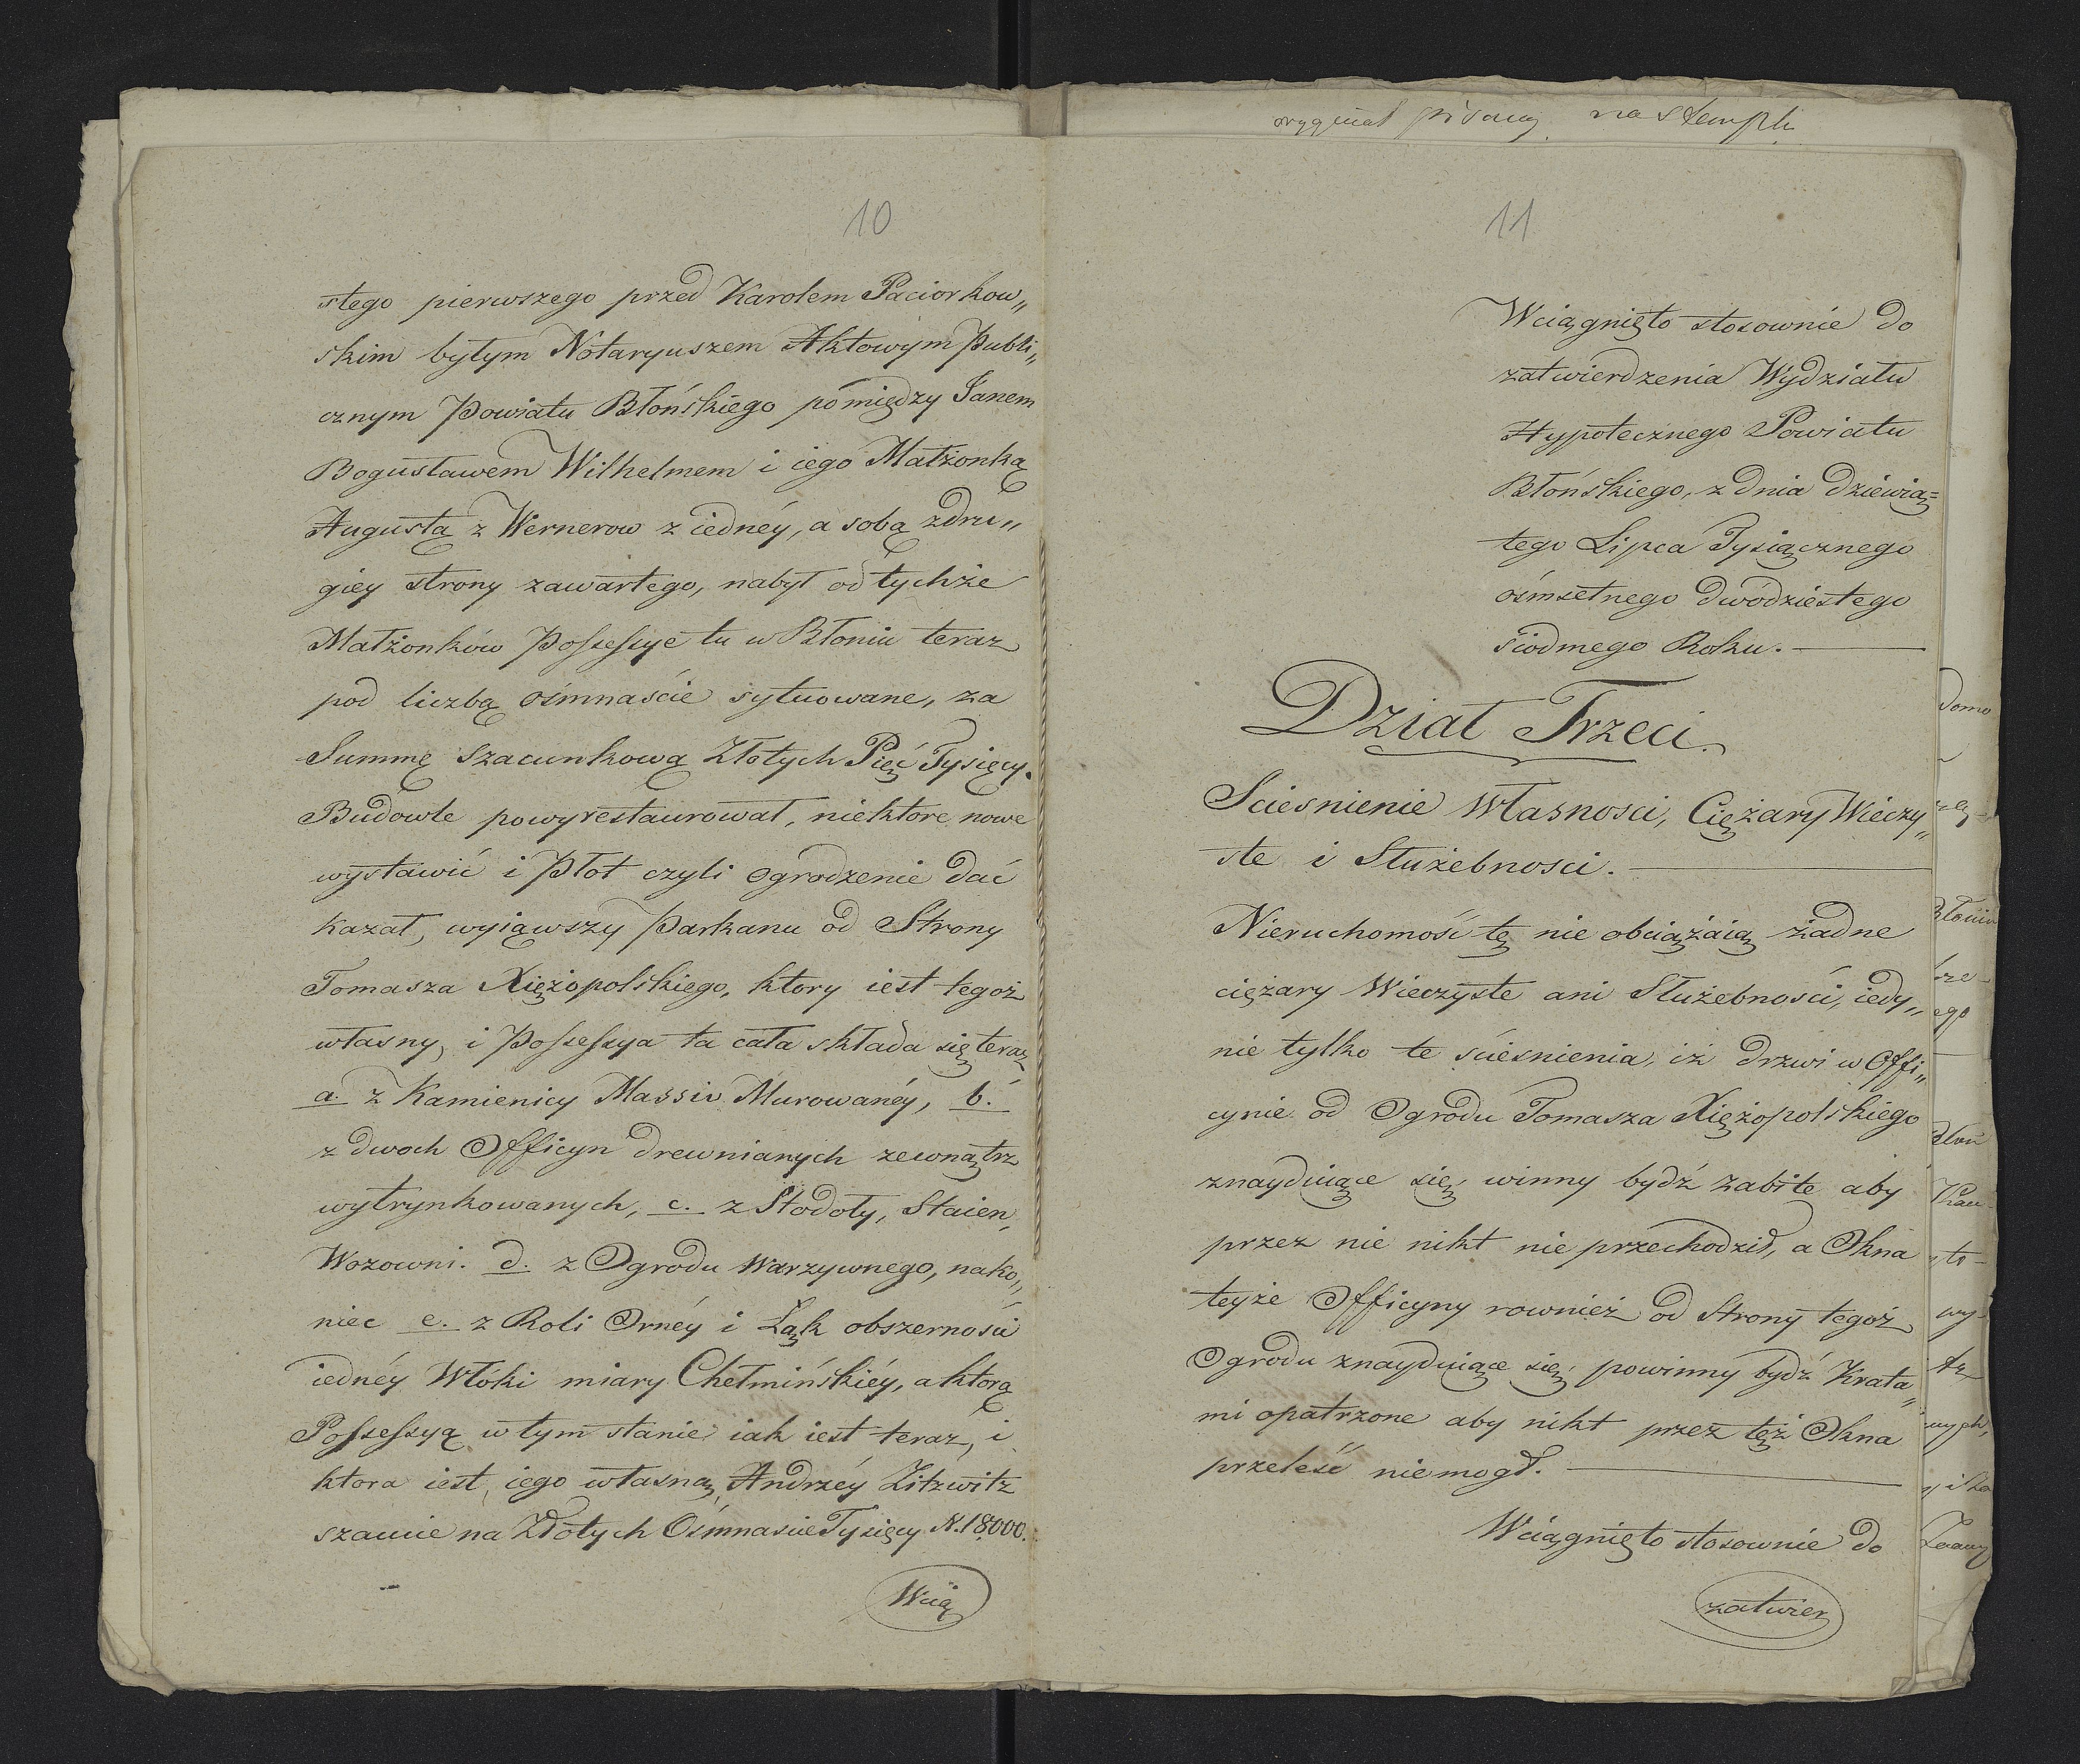 10
stego pierwszego przed Karolem Paciorkow„
skim byłym Notaryuszem Aktowym Publi„
cznym Powiatu Błońskiego pomiędzy Janem
Bogusławem Wilhelmem i iego Małżonką
Augustą z Wernerow z iednéy, a sobą z dru„
giey strony zawartego, nabył od tychże
Małżonków Possessye tu w Błoniu teraz
pod liczbą ośmnaście sytuowane, za
Summę szacunkową Złotych Pięć Tysięcy.
Budowle powyrestaurował, niektore nowe
wystawić i Płot czyli ogrodzenie dać
kazał, wyiąwszy Parkanu od Strony
Tomasza Xiężopolskiego, ktory iest tegoż
własny, i Possessya ta cała składa się teraz
a. z Kamienicy Massiv Murowanéy, b.
z dwoch Officyn drewnianych zewnątrz
wytrynkowanych, c. z Stodoły, Staien,
Wozowni. d. z Ogrodu Warzywnego, nako„
niec e. z Roli Ornéy i Łąk obszerności
iednéy Włóki miary Chełmińskiéy, a ktorą
Possessyą w tym stanie iak iest teraz, i
ktora iest iego własną, Andrzéy Zitzwitz
szacuie na Złotych Ośmnaście Tysięcy N. 18000.
Wcią
oryginał pisany na stemplu
11
Wciągnięto stosownie do
zatwierdzenia Wydziału
Hypotecznego Powiatu
Błońskiego, z dnia dziewią=
tego Lipca Tysiącznego
ośmsetnego dwódziestego
siodmego Roku.
Dział Trzeci.
Sciesnienie Własnosci, Ciężary Wieczy„
ste i Służebnosci.
Nieruchomość tę nie obciążaią żadne
ciężary Wieczyste ani Służebności, iedy„
nie tylko te ściesnienia, iż drzwi w Offi„
cynie od Ogrodu Tomasza Xiężopolskiego
znayduiące się, winny bydź zabite aby
przez nie nikt nie przechodził, a Okna
teyże Officyny rownież od Strony tegoż
Ogrodu znayduiące się, powinny bydź Krata„
mi opatrzone aby nikt przez też Okna
przeleść nie mogł.
Wciągnięto stosownie do
zatwier